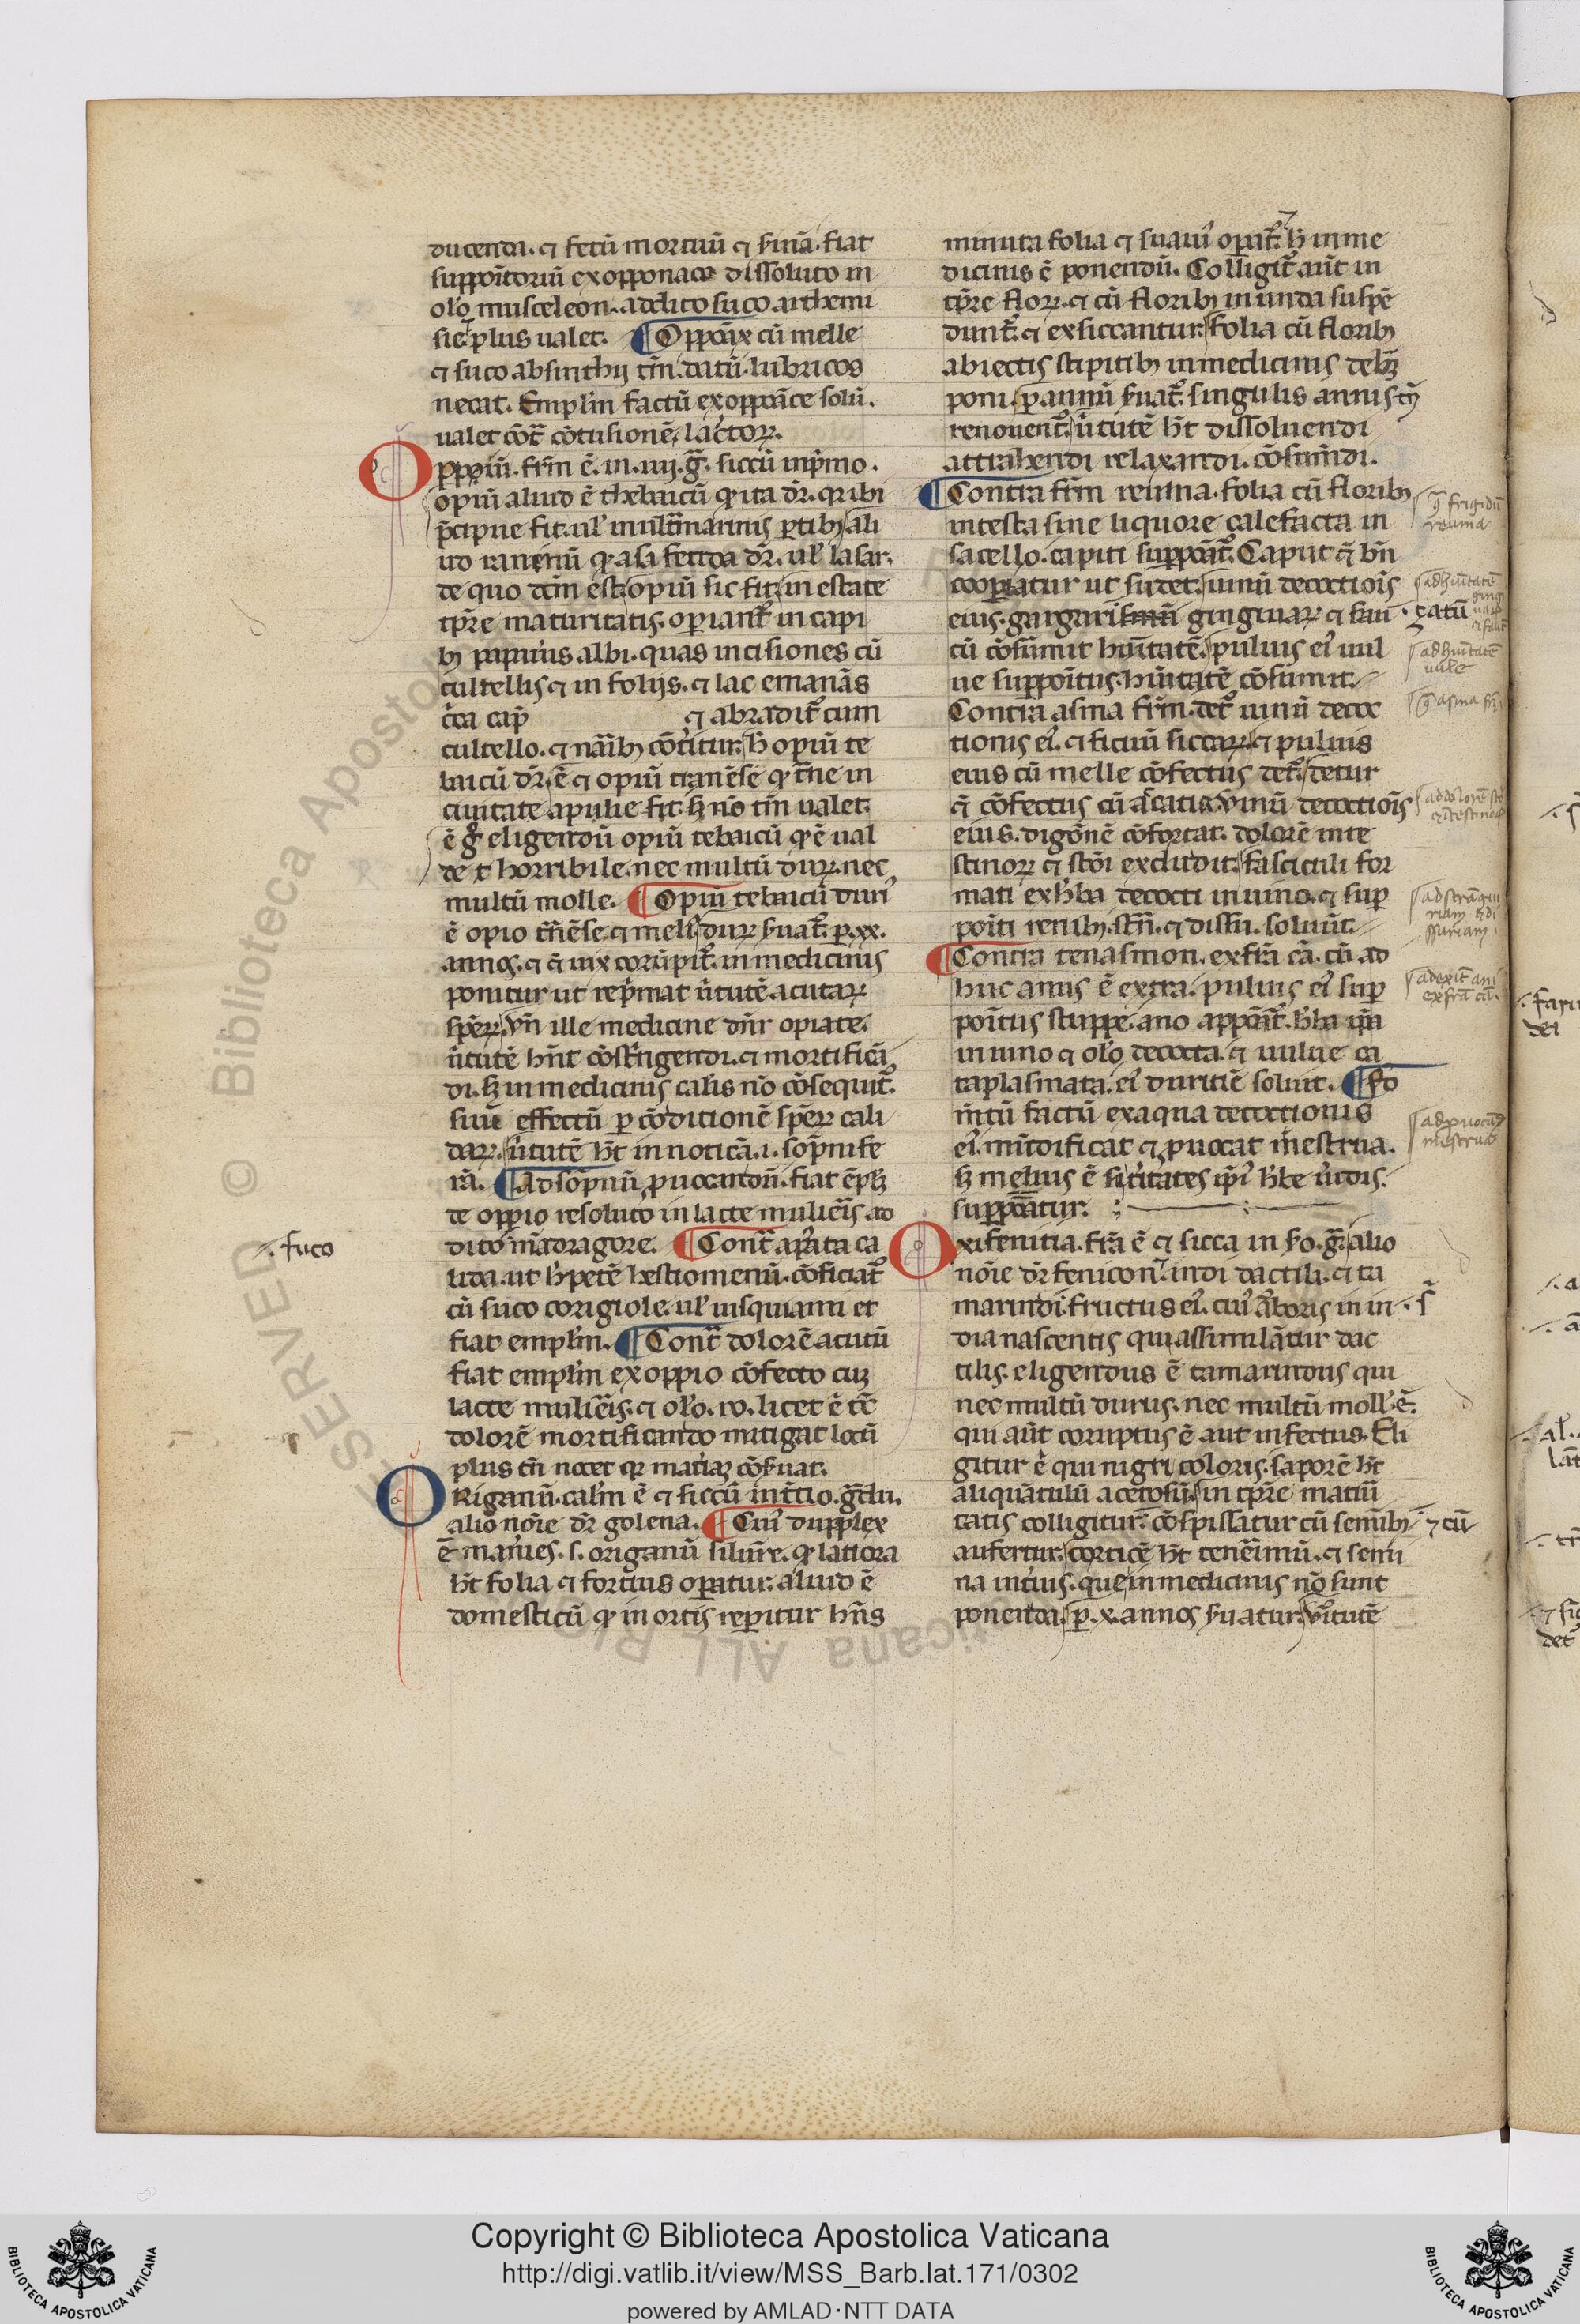 ducenda. ⁊ fetū mortuū ⁊ scd̄inā. fiat
suppoītoriū ex opponace dissoluto in
olo musceleon. addito suco arthemi
sie plus ualet. ¶ Oppoāx cū melle
⁊ suco absinthij tm̄. datū. lubricos
necat. Emplm̄ factū ex oppoāce solū.
ualet cōt̄ cōtusionē lac̄torꝝ.
Oppiū. frm̄ ē. in. iiij. ḡ. siccū in p̄mo.
opiū aliud ē thebaicū qđ ita dr̄. qr ibi
p̄cipue fit. ul' in ult̄marinis ꝑtibꝫ ali
ud raneniū qđ asa fetida dr̄. ul' lasar.
de quo dcm̄ est. opiū sic fit. in estate
tp̄re maturitatis. oꝑiant̄ in capi
bꝫ papaūis albi. quas incisiones cū
cultellis ⁊ in folijs. ⁊ lac emanās
c̄ca cap̄ ⁊ abradit̄ cum
cultello. ⁊ māibꝫ cōt̄itur. h̄ opiū te
baicū dr̄. ē ⁊ opiū tranēse qđ t̄ne in
ciuitate apulie fit. sꝫ nō tm̄ ualet.
ē g° eligendū opiū tebaicū qđ ē ual
de horribile. nec multū durꝝ. nec
multū molle. ¶ Opiū tebaicū duri'
ē opio t̄nēse. ⁊ meli' durꝝ s̄uat̄. ꝑ. xx.
annos. ⁊ ī uix corūpit̄. in medicinis
ponitur ut rep̄mat ūtutē acutarꝝ
sp̄erꝝ. vn̄ ille medicine dn̄r opiate.
ūtutē hn̄t cōst̄ngendi. ⁊ mortificā
di. sꝫ in medicinis calis nō cōsequit̄.
suū effectū ꝑ cōditionē sp̄erꝝ cali
darꝝ. ūtutē ht̄ innoticā. i. sop̄nife
rā. ¶ Ad sōpnū ꝓuocandū. fiat ēpꝫ
de oppio resoluto in lacte muliēis ad
dito mādragore. ¶ Cont̄ ap̄ata ca
lida. ut h'petē hestiomenū. cōficiat̄
cū suco corigiole. ul' iusquiami et
fiat emplm̄. ¶ Cont̄ dolorē acutū
fiat emplm̄ ex oppio cōfecto cuꝫ
lacte muliēis. ⁊ olo. ro. licet ē tc̄
dolorē mortificando mitigat locū
plus tn̄ nocet qr mat̄iaꝫ cōs̄uat.
Origanū. calm̄ ē ⁊ siccū in t̄tio. g̅du.
alio noīe dr̄ golena. ¶ Cui' dupplex
ē man̄ies. s. origanū silur̄e. qđ latiora
ht̄ folia ⁊ fortius oꝑatur. aliud ē
domesticū qđ in ortis reꝑitur hn̄s
·/. suco
minuta folia ⁊ suaui' oꝑat̄. h̄ in me
dicinis ē ponendū. Colligit̄ aūt in
tp̄re florꝝ. ⁊ cū floribꝫ in unda suspē
dunt̄. ⁊ exsiccantur. folia cū floribꝫ
abiectis stipitibꝫ in medicinis debꝫ
poni. ꝑ annū s̄uat̄. singulis annis tn̄
renouent̄. ūtutē ht̄ dissoluendi
attrahendi relaxandi. cōsum̄di.
¶ Contra frm̄ reuma. folia cū floribꝫ
in testa sine liquore calefacta in
sacello. capiti suppoāt̄. Caput ⁊ bn̄
cooꝑiatur ut sudet. uinū decoctiōis
eius. gargari gingiuarꝝ ⁊ fau · zatū
cū cōsumit hūitatē. puluis ei' uul
ue suppoītus. hūitatē cōsumit.
Contra asma frm̄. det̄ uinū decoc
tionis ei'. ⁊ ficuū siccarꝝ. ⁊ puluis
eius cū melle cōfectus det̄. detur
⁊ cōfectus cū acatia. vinū decoctiōis
eius. digōnē cōfortat. dolorē inte
stinorꝝ ⁊ stōi excludit. fasciculi for
mati ex h'ba decocti in uino. ⁊ suꝑ
poīti renibꝫ. str̄n. ⁊ dissn̄. soluūt.
¶ Contra tenasmon. ex fr̄a cā. cū ad
huc anus ē extra. puluis ei' suꝑ
poītus stuppe. ano appoāt̄. h'ba ip̄a
in uino ⁊ olo decocta. ⁊ uulue ca
taplasmata. ei' duritiē soluit. ¶ Fo
m̄tū factū ex aqua decoctionis
ei'. mūdificat ⁊ ꝓuocat mēstrua.
sꝫ melius ē si t̄itates ip̄i' h'be ūidis.
suppoātur.
Oxifenitia. fr̄a ē ⁊ sicca in s̄o. g̅. alio
noīe dr̄ fenicon. indi dactili. ⁊ ta
marindi. fructus ei'. cui' ārboris in in · s̄
dia nascentis qui assimulātur dac
tilis. eligendus ē tamarindus qui
nec multū durus. nec multū moll' ē.
qui aūt coruptus ē aut infectus. Eli
gitur ē qui nigri coloris. saporē ht̄
aliquātulū acetosū. in tp̄re matūi
tatis colligitur. cōspissatur cū semibꝫ · ⁊ cū
aufertur. corticē ht̄ tenēimū. ⁊ semi
na int̄ius. que in medicinis nō sunt
ponenda. ꝑ. x. annos s̄uatur. v'tutē
ꝯ̄ frigidū
reuma
ad hūitatē
gingi
ad hūitatē
uule
ꝯ̄ asma fr̄
ad dolorē stō
⁊ ītestinoꝝ
ad strāgui
riam ⁊ di
ssuriam
ad exit̄ ani
ex fr̄a cā.
ad ꝓuocādū
mēstrua
Copyright © Biblioteca Apostolica Vaticana
http://digi.vatlib.it/view/MSS_Barb.lat.171/0302
powered by AMLAD·NTT DATA
BIBLIOTECA APOSTOLICA VATICANA
BIBLIOTECA APOSTOLICA VATICANA